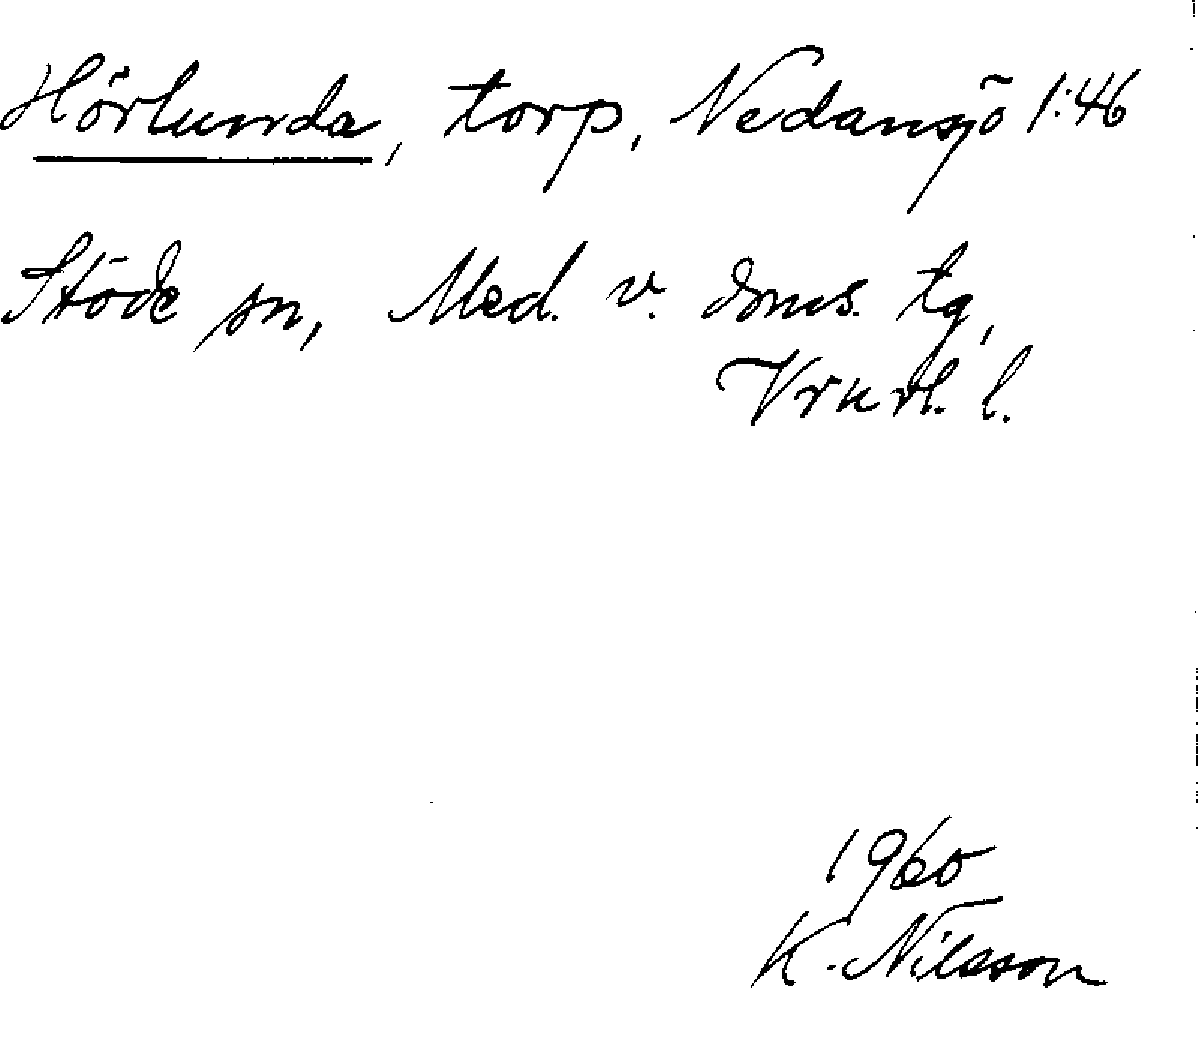 Hörlunda, torp, Nedansjö 1:46
Stöde sn, Med. v. doms. tg,
Vrnrl. l.
1960
K. Nilsson